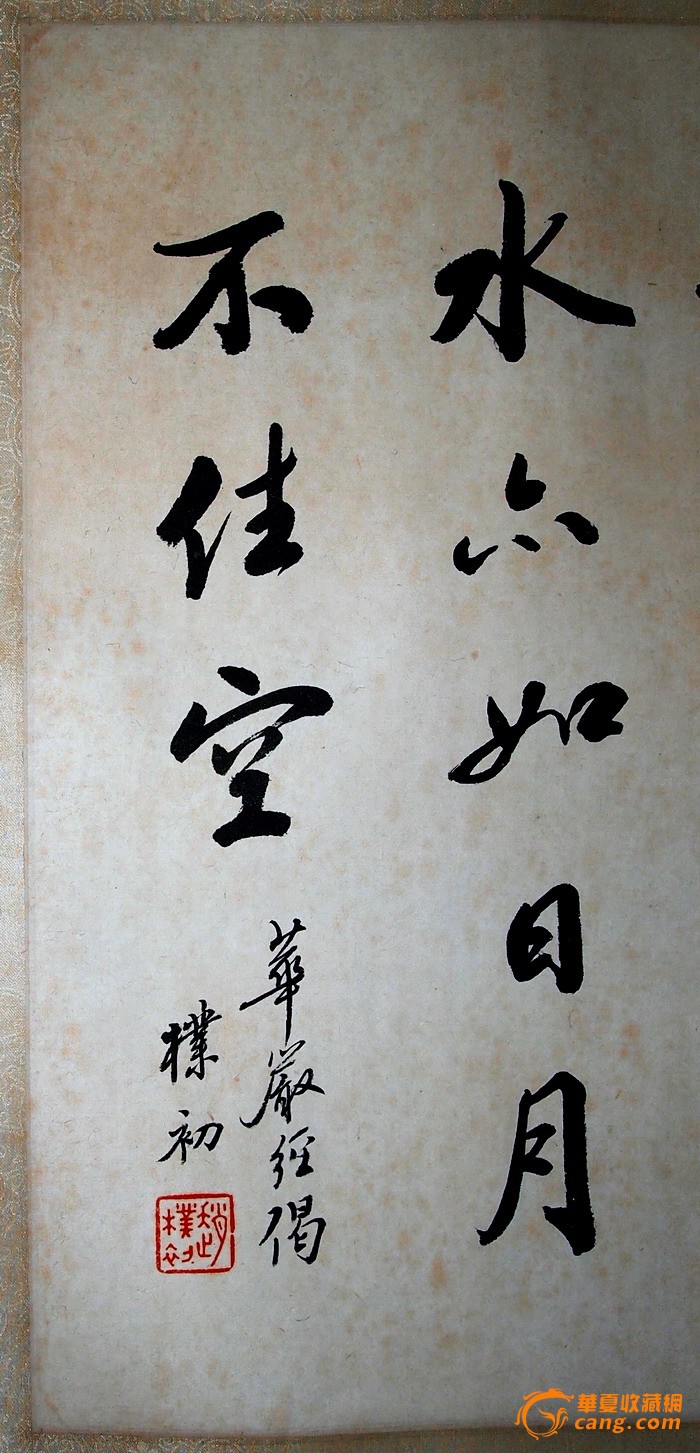 水亦如日月
不住空
華嚴經偈
樸初
趙樸初
華夏收藏網
cang.com